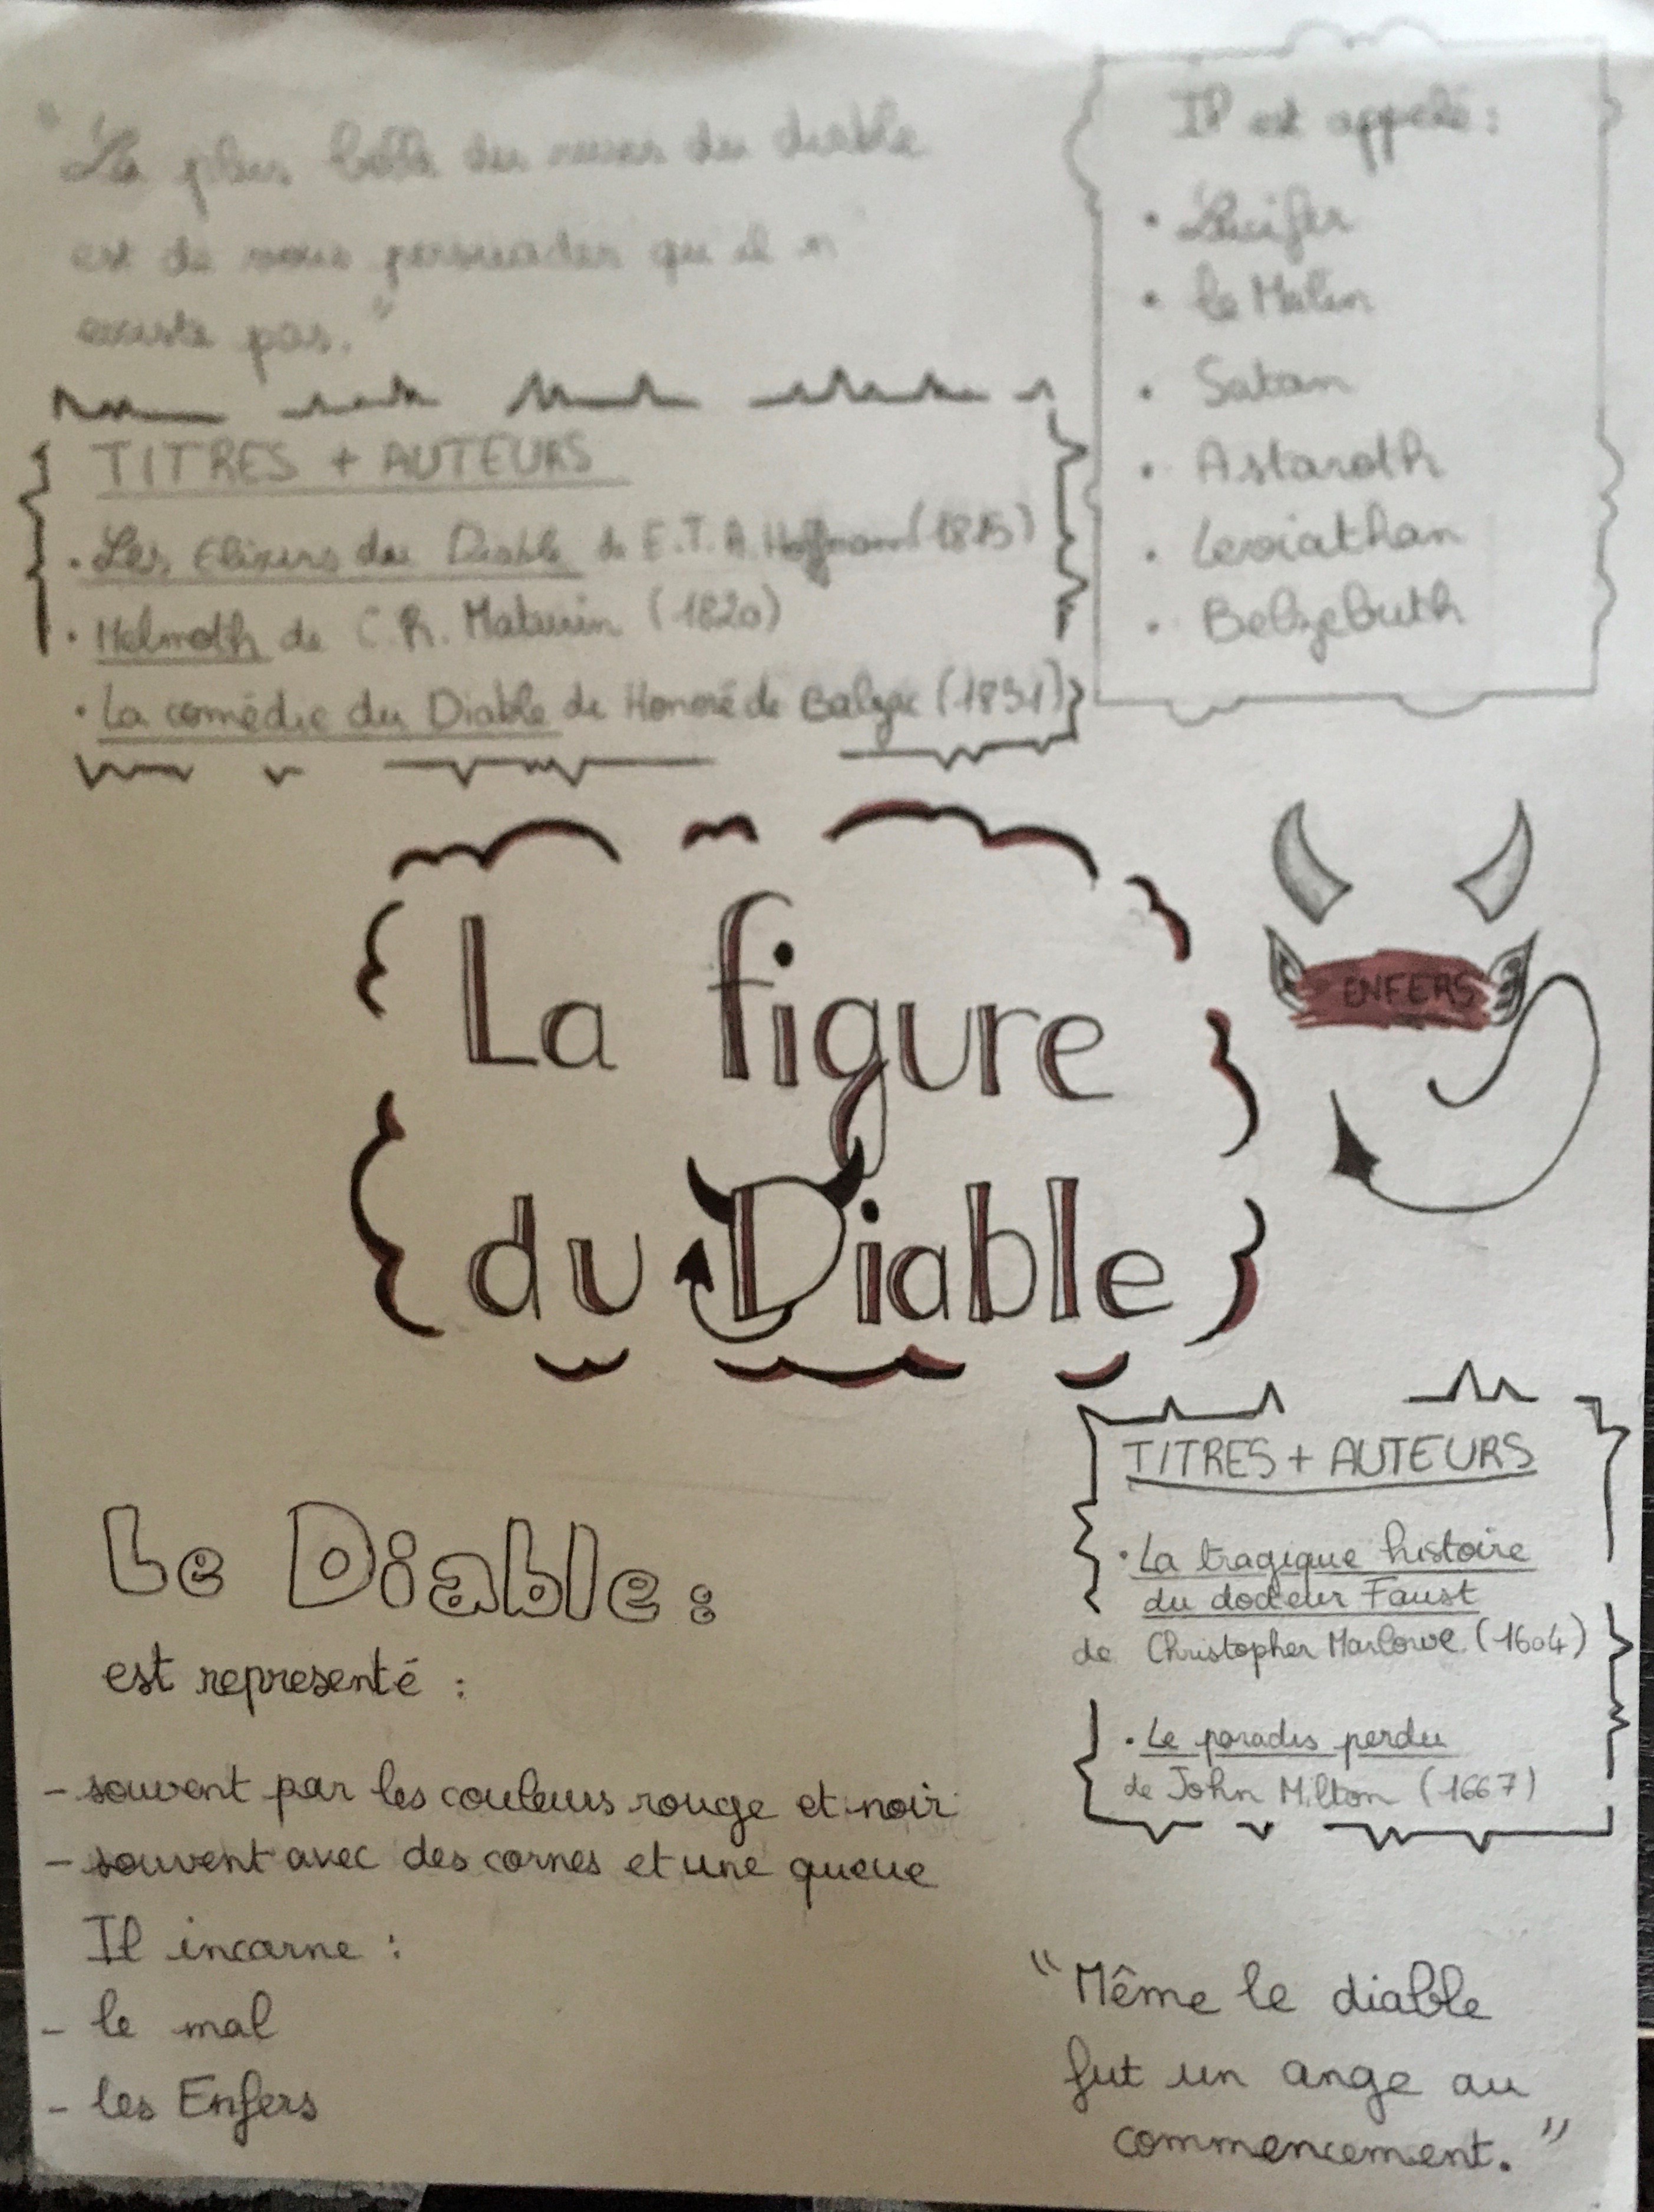 "La plus belle des ruses du diable
est de nous persuader qu'il n'
existe pas."
Il est appelé :
• Lucifer
• le Malin
• Satan
• Astaroth
• Leviathan
• Belzebuth
TITRES + AUTEURS
• Les Elixirs du Diable de E.T.A. Hoffmann (1815)
• Melmoth de C.R. Maturin (1820)
• La comédie du Diable de Honoré de Balzac (1831)
La figure
du Diable
ENFERS
TITRES + AUTEURS
• La tragique histoire
du docteur Faust
de Christopher Marlowe (1604)
• Le paradis perdu
de John Milton (1667)
Le Diable :
est representé :
- souvent par les couleurs rouge et noir
- souvent avec des cornes et une queue
Il incarne :
- le mal
- les Enfers
"Même le diable
fut un ange au
commencement."